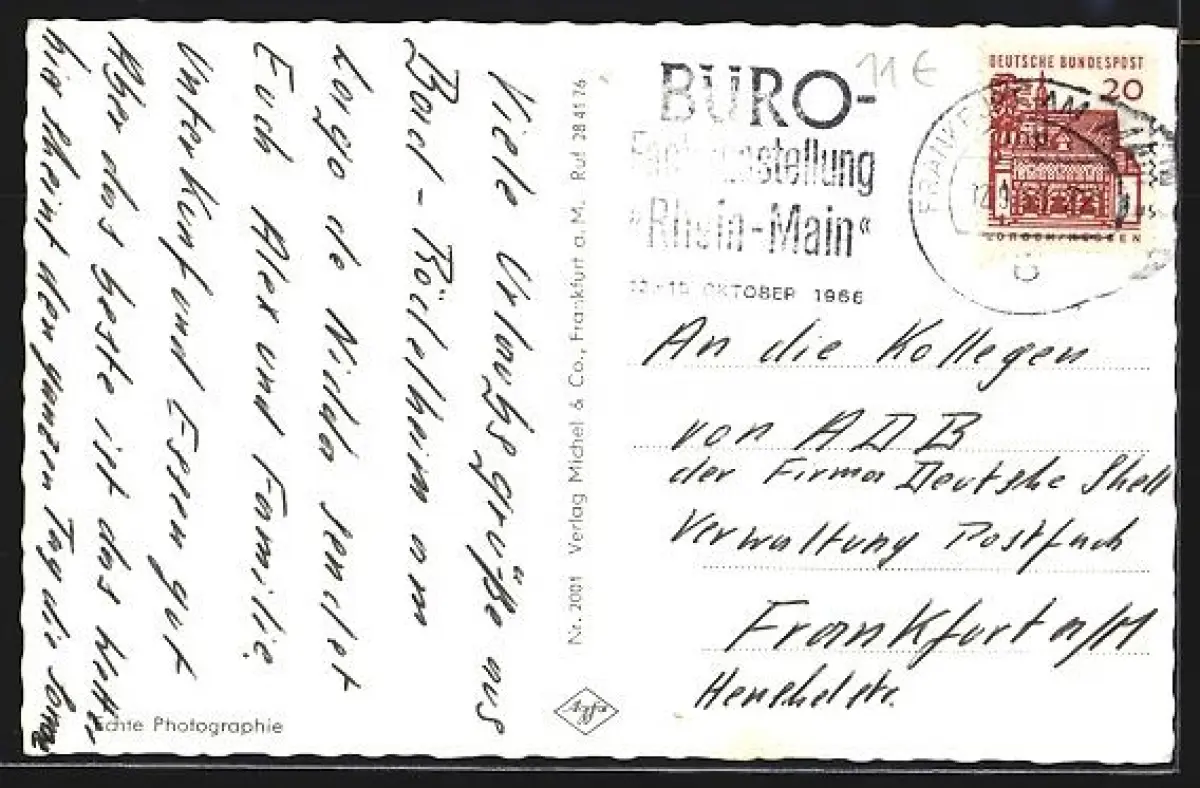 Viele Urlaubsgrüße aus
Bad-Rödelheim am
Lago de Nidda sendet
Euch Alex und Familie.
Unterkunft und Essen gut
Aber das beste ist das Wetter
hier scheint den ganzen Tag die Sonne
Echte Photographie
Nr. 2001 Verlag Michel & Co., Frankfurt a. M. Ruf 28 41 76
Agfa
11 €
BÜRO-
Fachausstellung
"Rhein-Main"
OKTOBER 1966
DEUTSCHE BUNDESPOST
20
LORSCH/HESSEN
FRANKFURT AM MAIN
An die Kollegen
von ADB
der Firma Deutsche Shell
Verwaltung Postfach
Frankfurt a/M
Henschelstr.